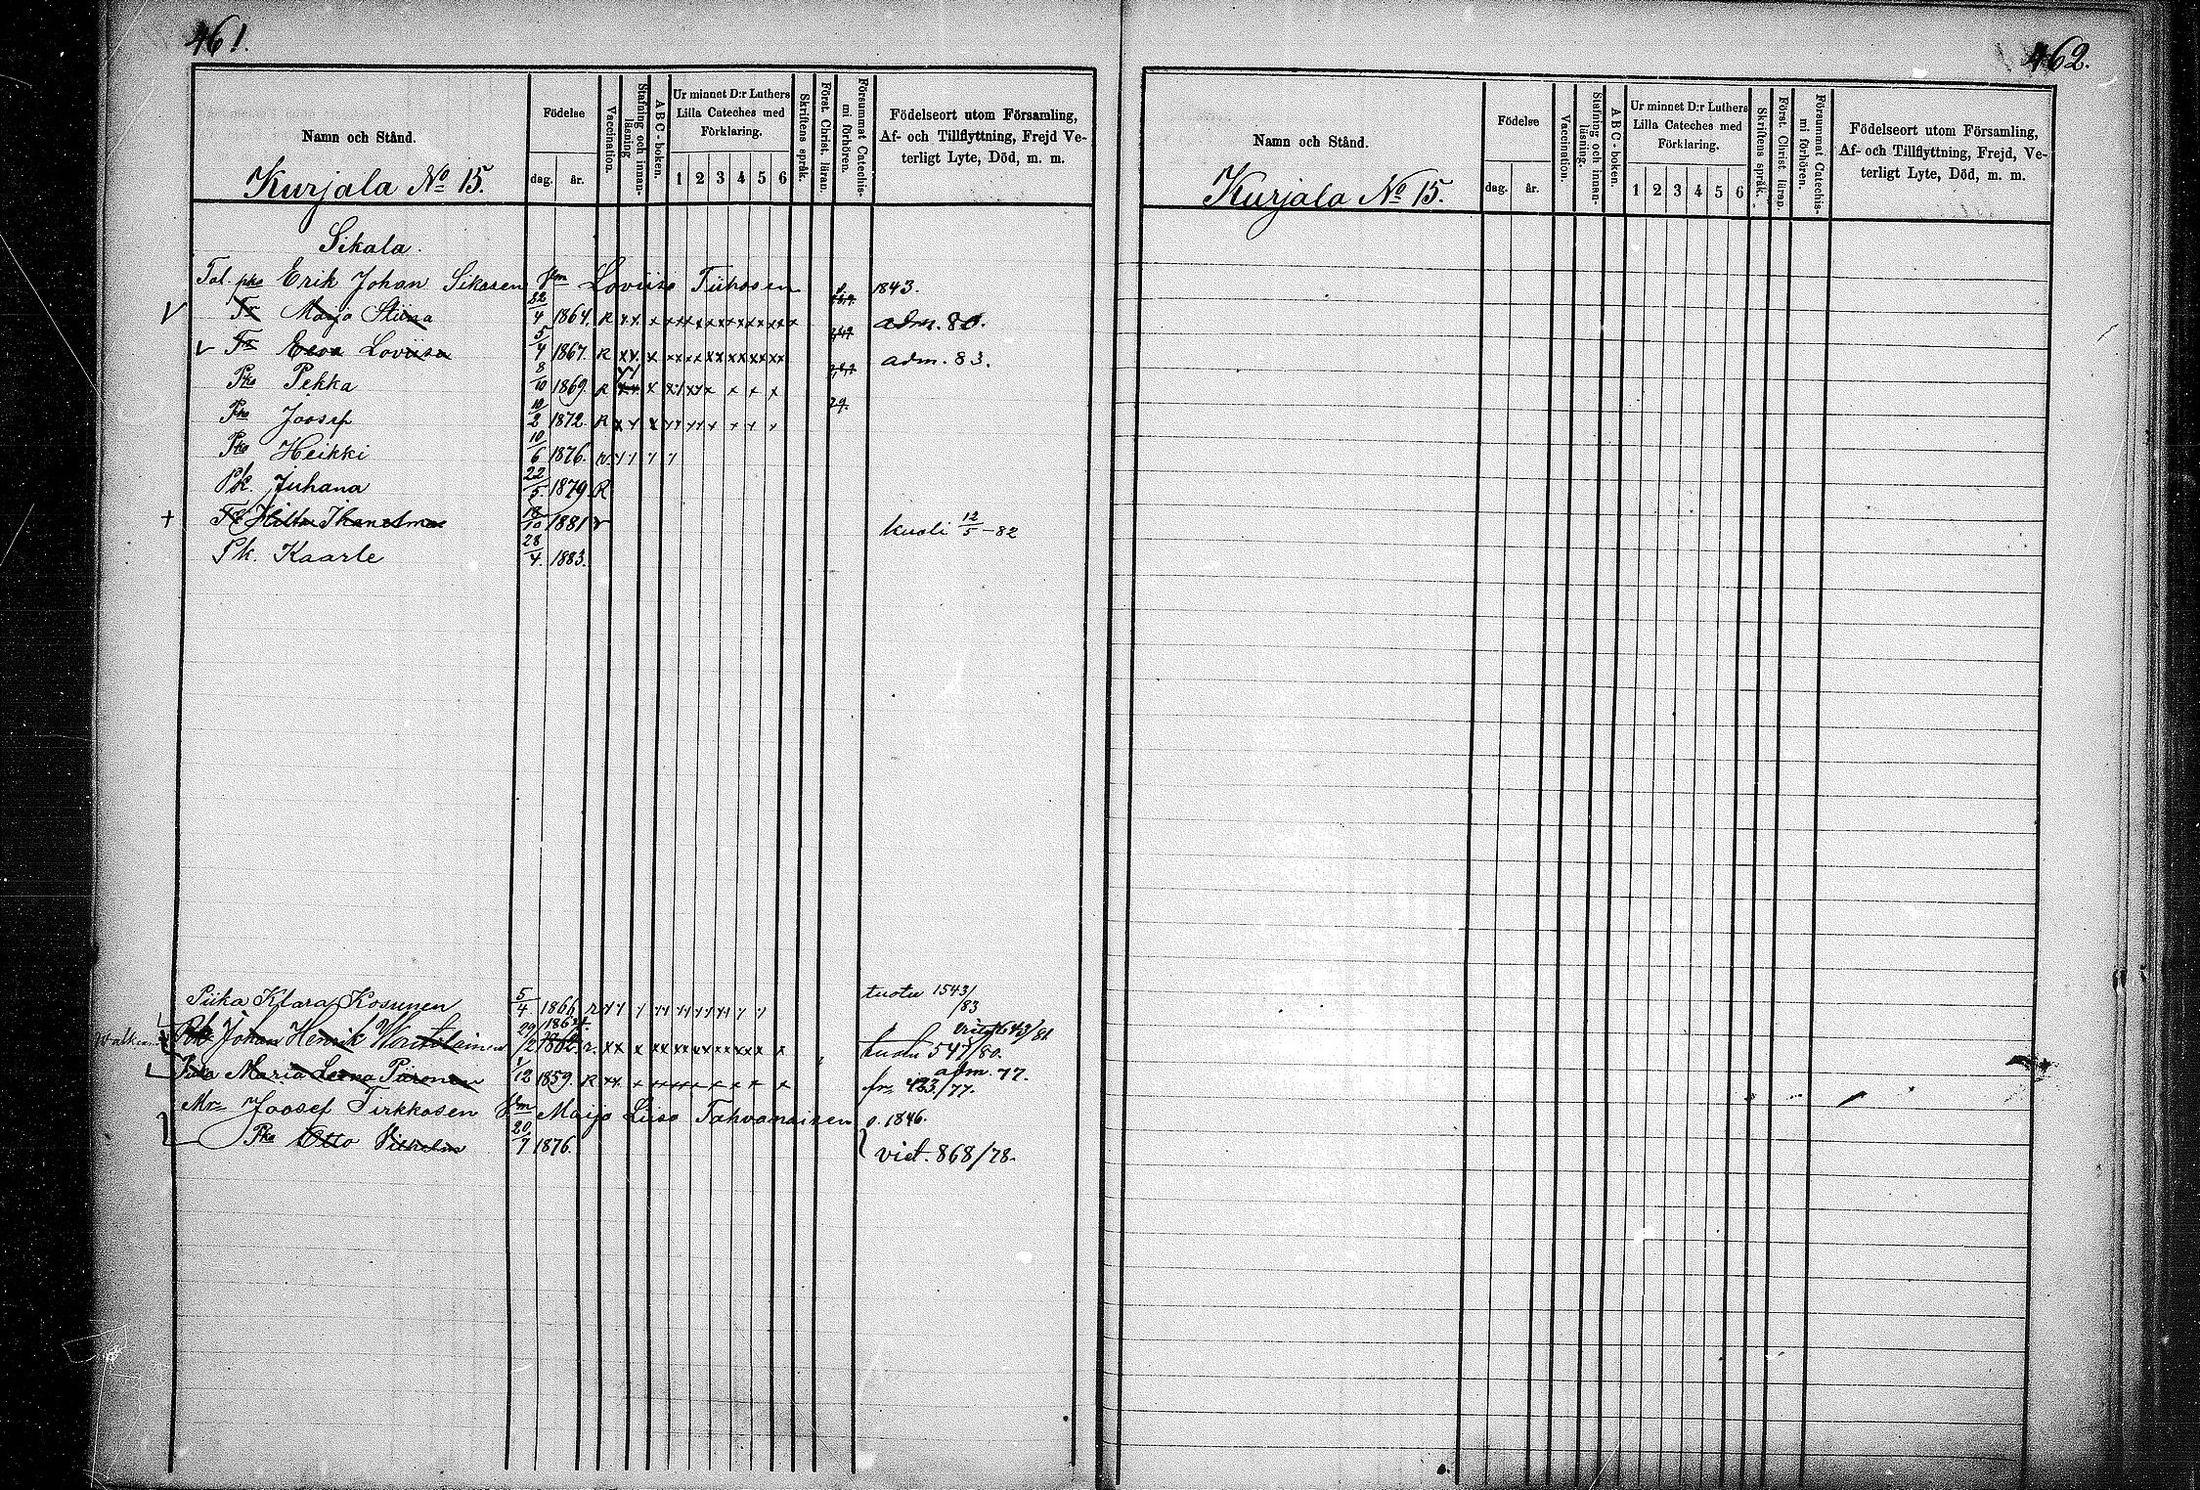 461.
Namn och Stånd.
Födelse
dag. år.
Vaccination.
Stafning och innanläsning
ABC-boken.
Ur minnet D:r Luthers
Lilla Cateches med
Förklaring.
1 2 3 4 5 6
Skriftens språk.
Först. Christ. läran.
Försummat Catechismi förhören.
Födelseort utom Församling,
Af- och Tillflyttning, Frejd Ve-
terligt Lyte, Död, m. m.
Kurjala No 15.
Sikala.
Tal. pka Erik Johan Sikasen Wm Loviisa Tiihosen 1843.
Tr Maija Stiina 22/4 1864. R adm. 80.
Tr Eeva Loviisa 5/4 1867. R adm. 83.
Pka Pekka 8/10 1869. R
Pka Joosef 10/2 1872. R 29.
Pka Heikki 10/6 1876. r
Pk. Juhana 22/5. 1879. R
18/10 1881 r kuoli 12/5-82
Pk. Kaarle 28/4. 1883.
Piika Klara Kosunen 5/4 1866. r tuotu 1543/83
Johan Henrik 29/2 1862. r. tuotu 547/80.
Piika Maria Leena Piironen 1/12 1859. R fr. 423/77. adm. 77.
Mr Joosef Tirkkosen Wm Maija Liisa Tahvanaisen s. 1846.
Pka Otto Vilhelm 20/7 1876. viet. 868/78.
462.
Namn och Stånd.
Födelse
dag. år.
Vaccination.
Stafning och innanläsning.
ABC-boken.
Ur minnet D:r Luthers
Lilla Cateches med
Förklaring.
1 2 3 4 5 6
Skriftens språk.
Först. Christ. läran.
Försummat Catechismi förhören.
Födelseort utom Församling,
Af- och Tillflyttning, Frejd, Ve-
terligt Lyte, Död, m. m.
Kurjala No 15.